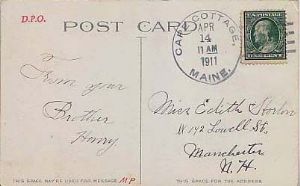 D.P.O.
POST CARD
CAPE COTTAGE,
APR
14
11 AM
1911
MAINE.
From your
Brother
Henry
Miss Edith
192 Lowell St,
Manchester
N. H.
THIS SPACE MAY BE USED FOR MESSAGE
MP
THIS SPACE IS FOR THE ADDRESS